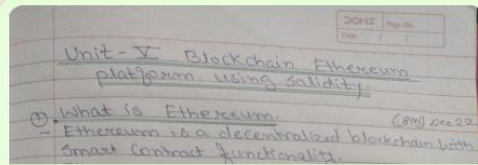 DOMS Page No.
Date / /
Unit - V Blockchain Ethereum
platform using Solidity.
① What is Ethereum. (8m) Dec 22
- Ethereum is a decentralized blockchain with
Smart Contract functionality